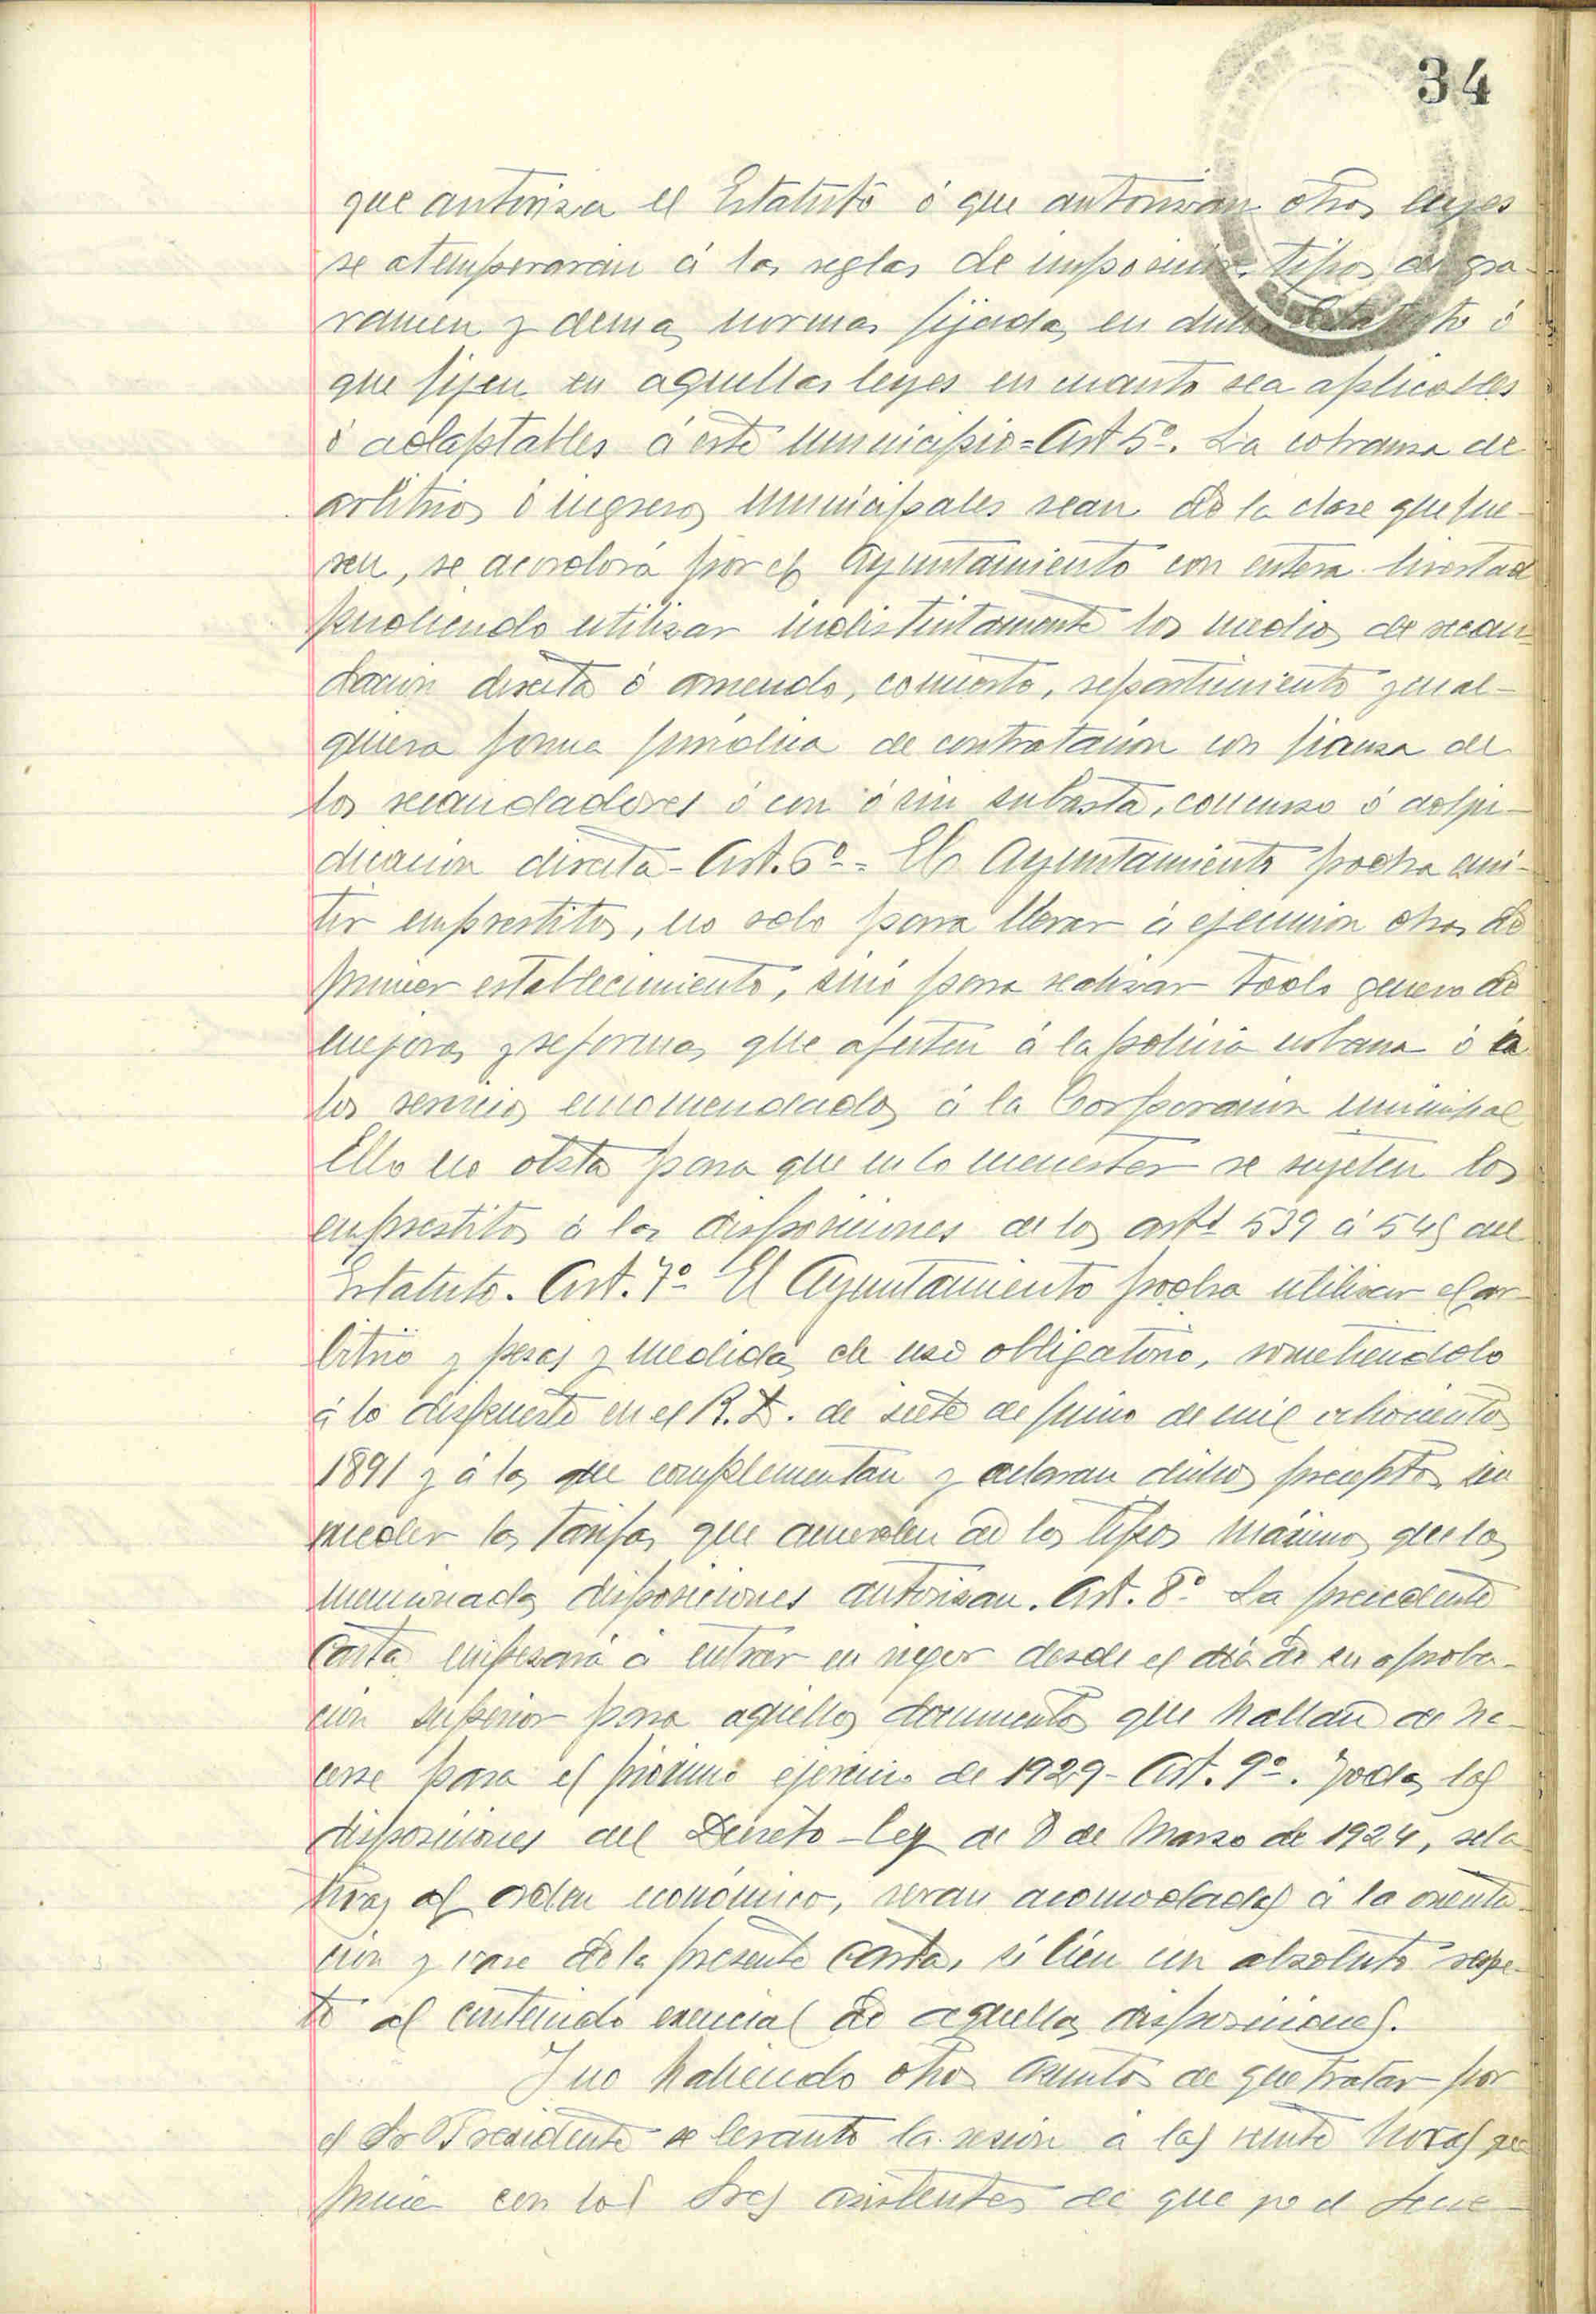 34
que autoriza el Estatuto ó que autorizan otras leyes
se atemperarán á las reglas de imposición, tipos de gra-
vamen y demas normas fijadas en dicho Estatuto ó
que fijen en aquellas leyes en cuanto sea aplicables
ó adaptables á este Municipio = Art 5º. La cobranza de
arbitrios ó ingresos Municipales sean de la clase que fue-
sen, se acordará por el Ayuntamiento con entera livertad
pudiendo utilizar indistintamente los medios de recau-
dacion directa ó arriendo, concierto, repartimiento y cual-
quiera forma jurídica de contratación con fianza de
los recaudadores ó con ó sin subasta, concurso ó adju-
dicacion directa - Art. 6º = El Ayuntamiento podra emi-
tir emprestitos, no solo para llevar á ejecucion obras de
primer establecimiento, sinó para realizar todo genero de
mejoras y reformas que afecten á la policia urbana ó á
los servicios encomendados á la Corporacion municipal
Ello no obsta para que en lo menester se sujeten los
emprestitos á las disposiciones de los artº 539 á 545 del
Estatuto. Art. 7º El Ayuntamiento podra utilizar el ar-
bitrio y pesas y medidas de uso obligatorio, sometiendolo
á lo dispuesto en el R.D. de siete de junio de mil ochocientos
1891 y á los que complementan y aclaran dichos preceptos sin
exceder las tarifas que acuerden de los tipos máximos que las
mencionadas disposiciones autorizan. Art. 8º La precedente
Carta empezará á entrar en vigor desde el dia de su aproba-
cion superior para aquellos documentos que hallan de ha-
cerse para el próximo ejercicio de 1929 - Art. 9º. Todas las
disposiciones del Decreto-ley de 8 de Marzo de 1924, rela
tivas al orden económico, seran acomodadas á la orienta-
cion y vase de la presente Carta, si bien con absoluto respe-
to al contenido esencial de aquellas disposiciones.
Y no habiendo otros asuntos de que tratar por
el Sr Presidente se levanto la sesion á las veinte horas que
firma con los Sres asistentes de que yo el Secre-